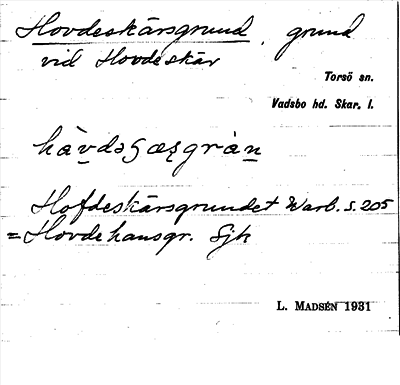 Hovdeskärsgrund, grund
vid Hovdeskär
Torsö sn.
Vadsbo hd. Skar. l.
Hofdeskärsgrundet Warb. s. 205
= Hovdehansgr. Sjk
L. MADSÉN 1931